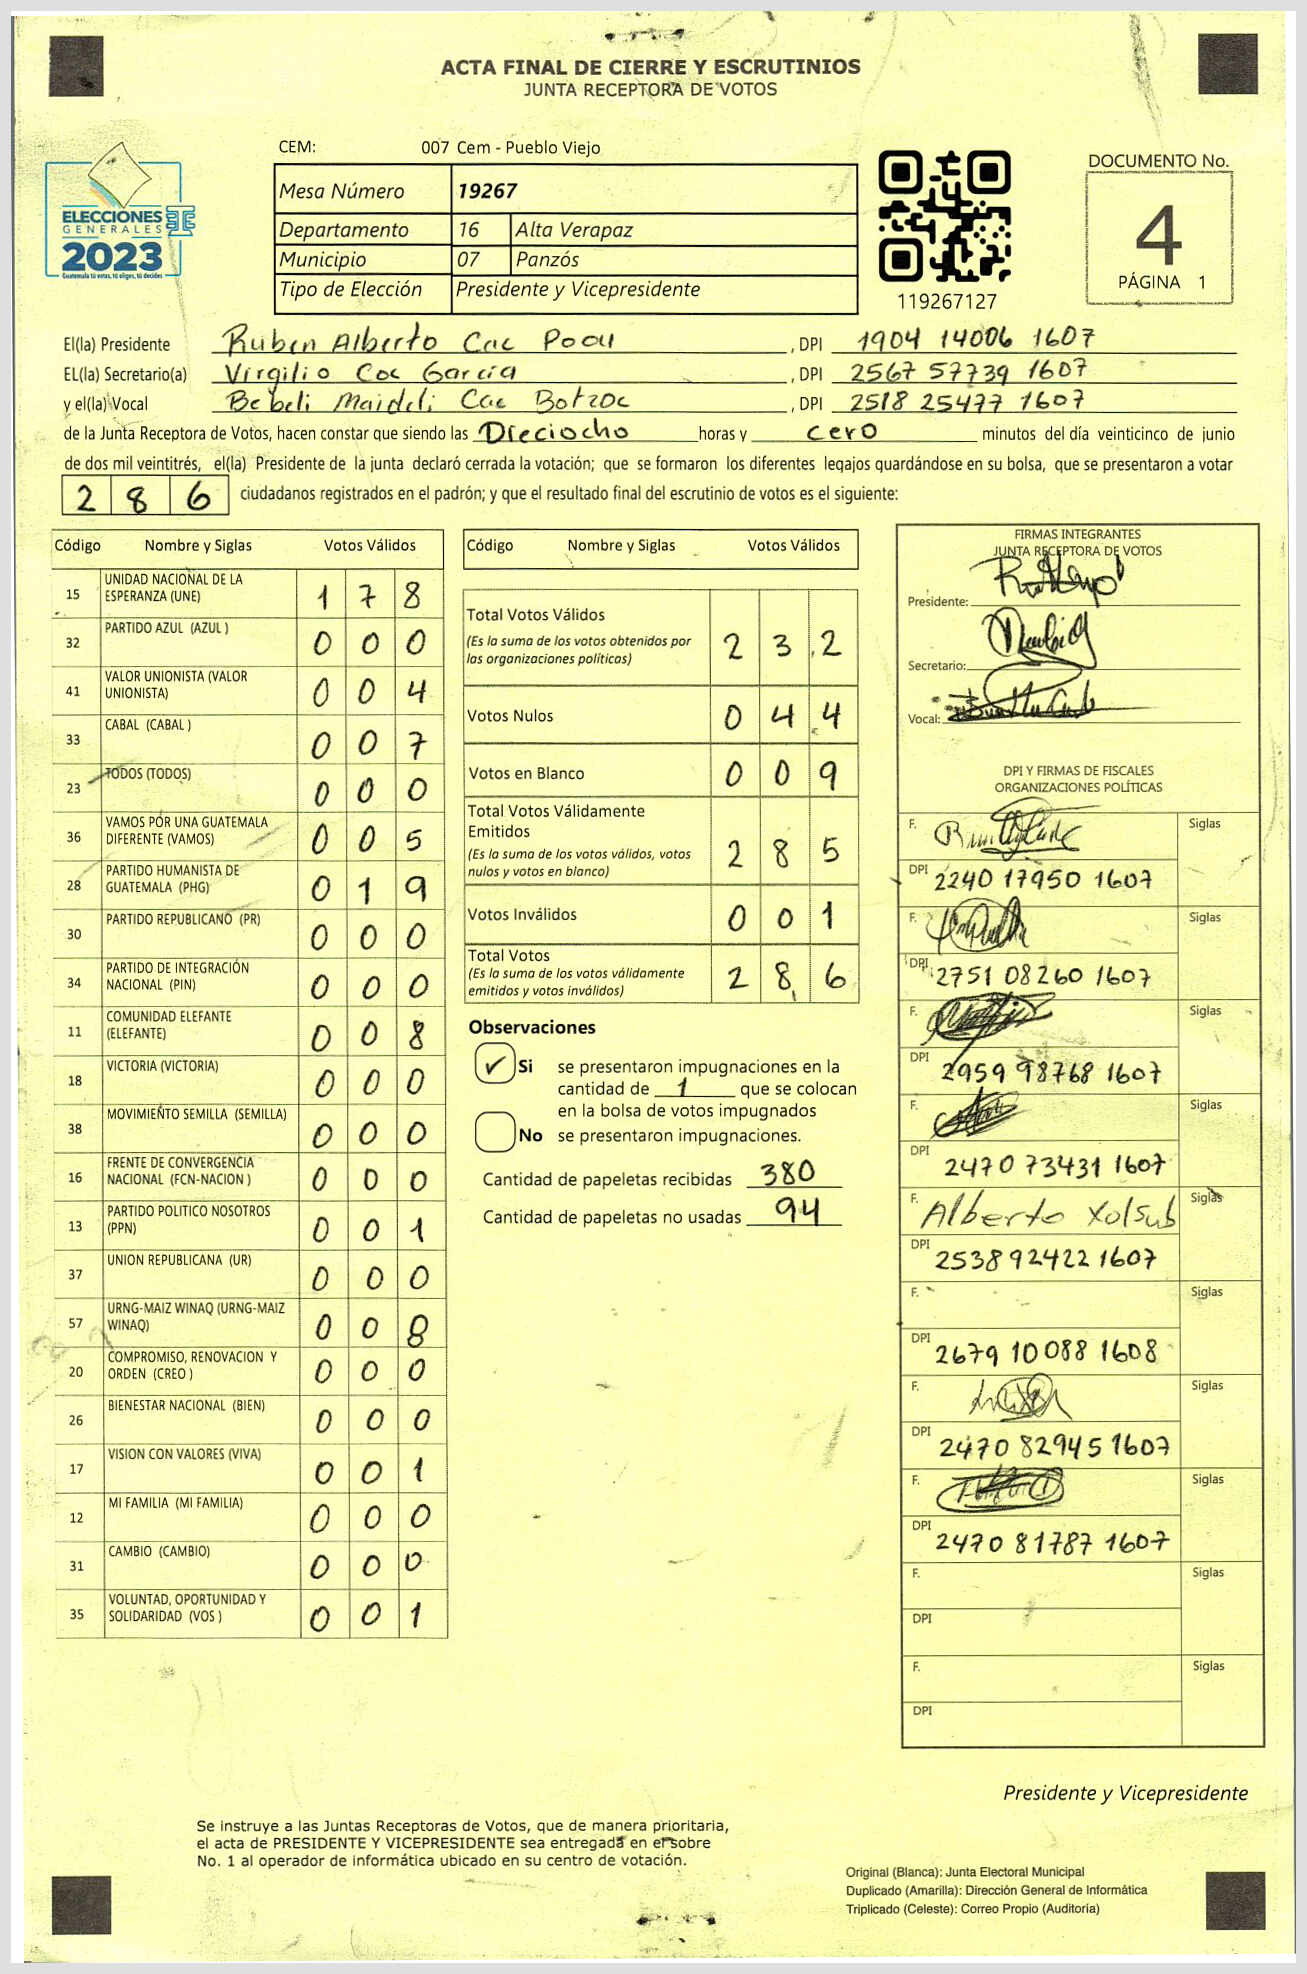 ACTA FINAL DE CIERRE Y ESCRUTINIOS
JUNTA RECEPTORA DE VOTOS
CEM: 007 Cem - Pueblo Viejo
Mesa Número 19267
Departamento 16 Alta Verapaz
Municipio 07 Panzós
Tipo de Elección Presidente y Vicepresidente
ELECCIONES
GENERALES
2023
Guatemala tú estás, tú eliges, tú decides
119267127
DOCUMENTO No.
4
PÁGINA 1
El(la) Presidente Ruben Alberto Cac Poou, DPI 1904 14006 1607
EL(la) Secretario(a) Virgilio Coc García, DPI 2567 57739 1607
y el(la) Vocal Bebeli Maideli Cac Botzoc, DPI 2518 25477 1607
de la Junta Receptora de Votos, hacen constar que siendo las Dieciocho horas y cero minutos del día veinticinco de junio
de dos mil veintitrés, el(la) Presidente de la junta declaró cerrada la votación; que se formaron los diferentes legajos guardándose en su bolsa, que se presentaron a votar
286 ciudadanos registrados en el padrón; y que el resultado final del escrutinio de votos es el siguiente:
Código Nombre y Siglas Votos Válidos
15 UNIDAD NACIONAL DE LA ESPERANZA (UNE) 1 7 8
32 PARTIDO AZUL (AZUL ) 0 0 0
41 VALOR UNIONISTA (VALOR UNIONISTA) 0 0 4
33 CABAL (CABAL ) 0 0 7
23 TODOS (TODOS) 0 0 0
36 VAMOS POR UNA GUATEMALA DIFERENTE (VAMOS) 0 0 5
28 PARTIDO HUMANISTA DE GUATEMALA (PHG) 0 1 9
30 PARTIDO REPUBLICANO (PR) 0 0 0
34 PARTIDO DE INTEGRACIÓN NACIONAL (PIN) 0 0 0
11 COMUNIDAD ELEFANTE (ELEFANTE) 0 0 8
18 VICTORIA (VICTORIA) 0 0 0
38 MOVIMIENTO SEMILLA (SEMILLA) 0 0 0
16 FRENTE DE CONVERGENCIA NACIONAL (FCN-NACION ) 0 0 0
13 PARTIDO POLITICO NOSOTROS (PPN) 0 0 1
37 UNION REPUBLICANA (UR) 0 0 0
57 URNG-MAIZ WINAQ (URNG-MAIZ WINAQ) 0 0 8
20 COMPROMISO, RENOVACION Y ORDEN (CREO ) 0 0 0
26 BIENESTAR NACIONAL (BIEN) 0 0 0
17 VISION CON VALORES (VIVA) 0 0 1
12 MI FAMILIA (MI FAMILIA) 0 0 0
31 CAMBIO (CAMBIO) 0 0 0
35 VOLUNTAD, OPORTUNIDAD Y SOLIDARIDAD (VOS ) 0 0 1
Código Nombre y Siglas Votos Válidos
Total Votos Válidos 2 3 2
(Es la suma de los votos obtenidos por
las organizaciones políticas)
Votos Nulos 0 4 4
Votos en Blanco 0 0 9
Total Votos Válidamente
Emitidos 2 8 5
(Es la suma de los votos válidos, votos
nulos y votos en blanco)
Votos Inválidos 0 0 1
Total Votos 2 8 6
(Es la suma de los votos válidamente
emitidos y votos inválidos)
Observaciones
✓ Si se presentaron impugnaciones en la
cantidad de 1 que se colocan
en la bolsa de votos impugnados
No se presentaron impugnaciones.
Cantidad de papeletas recibidas 380
Cantidad de papeletas no usadas 94
FIRMAS INTEGRANTES
JUNTA RECEPTORA DE VOTOS
Presidente:
Secretario:
Vocal:
DPI Y FIRMAS DE FISCALES
ORGANIZACIONES POLÍTICAS
F. Siglas
DPI 2240 17950 1607
F. Siglas
DPI 2751 08260 1607
F. Siglas
DPI 2959 98768 1607
F. Siglas
DPI 2470 73431 1607
F. Alberto Xolsub Siglas
DPI 2538 92422 1607
F. Siglas
DPI 2679 10088 1608
F. Siglas
DPI 2470 82945 1607
F. Siglas
DPI 2470 81787 1607
F. Siglas
DPI
F. Siglas
DPI
Presidente y Vicepresidente
Se instruye a las Juntas Receptoras de Votos, que de manera prioritaria,
el acta de PRESIDENTE Y VICEPRESIDENTE sea entregada en el sobre
No. 1 al operador de informática ubicado en su centro de votación.
Original (Blanca): Junta Electoral Municipal
Duplicado (Amarilla): Dirección General de Informática
Triplicado (Celeste): Correo Propio (Auditoría)